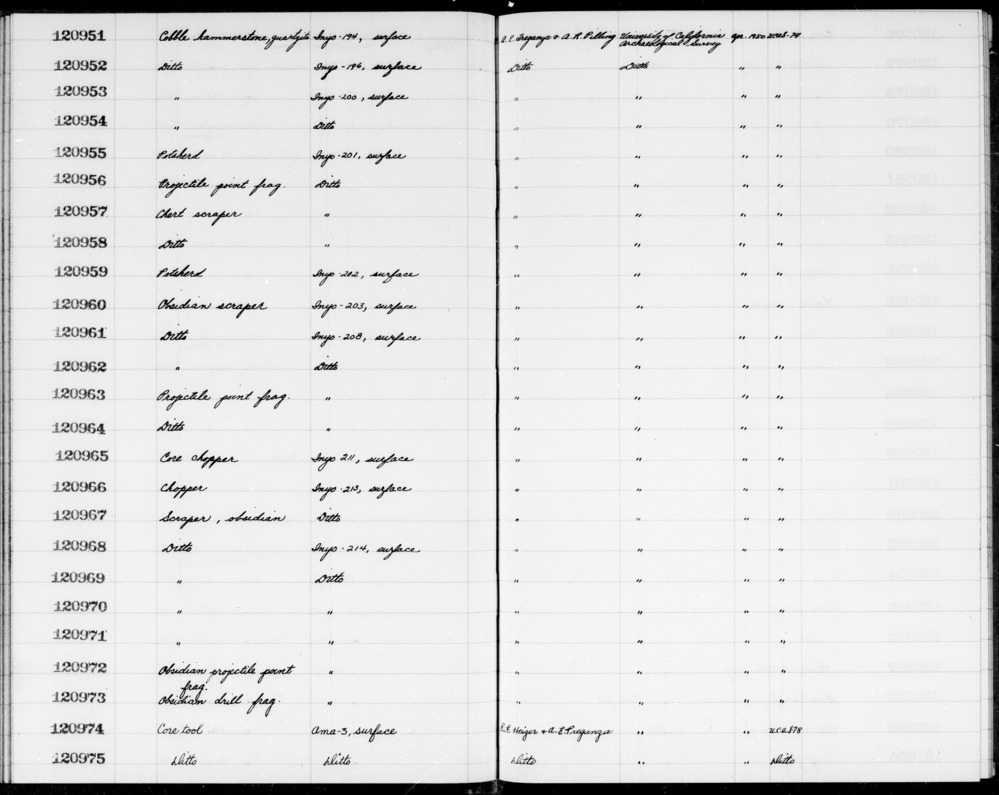 120951 Cobble hammerstone, quartzite Inyo-194, surface A.E. Treganza & A.R. Pilling University of California Archaeological Survey Apr. 1950 UCAS-74
120952 Ditto Inyo-196, surface Ditto Ditto " "
120953 " Inyo-200, surface " " " "
120954 " Ditto " " " "
120955 Potsherd Inyo-201, surface " " " "
120956 Projectile point frag. Ditto " " " "
120957 Chert scraper " " " " "
120958 Ditto " " " " "
120959 Potsherd Inyo-202, surface " " " "
120960 Obsidian scraper Inyo-203, surface " " " "
120961 Ditto Inyo-208, surface " " " "
120962 " Ditto " " " "
120963 Projectile point frag. " " " " "
120964 Ditto " " " " "
120965 Core chopper Inyo 211, surface " " " "
120966 Chopper Inyo-213, surface " " " "
120967 Scraper, obsidian Ditto " " " "
120968 Ditto Inyo-214, surface " " " "
120969 " Ditto " " " "
120970 " " " " " "
120971 " " " " " "
120972 Obsidian projectile point " " " " "
frag.
120973 Obsidian drill frag. " " " " "
120974 Core tool Ama-3, surface R.F. Heizer & A.E. Treganza " " UCAS78
120975 Ditto Ditto Ditto " " Ditto